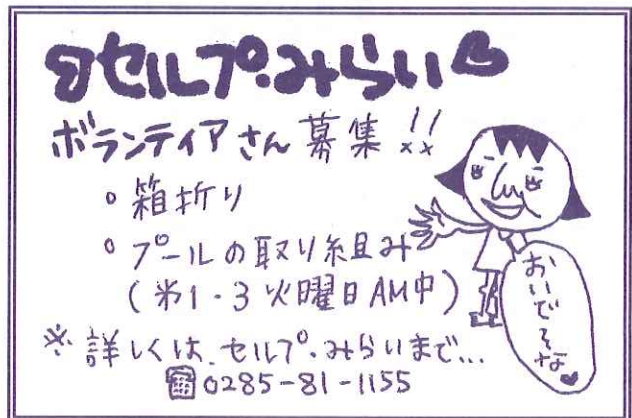 セルプ・みらい
ボランティアさん募集!!
。箱折り
。プールの取り組み
(第1・3火曜日AM中)
※詳しくは、セルプ・みらいまで...
☎0285-81-1155
おいで
そな